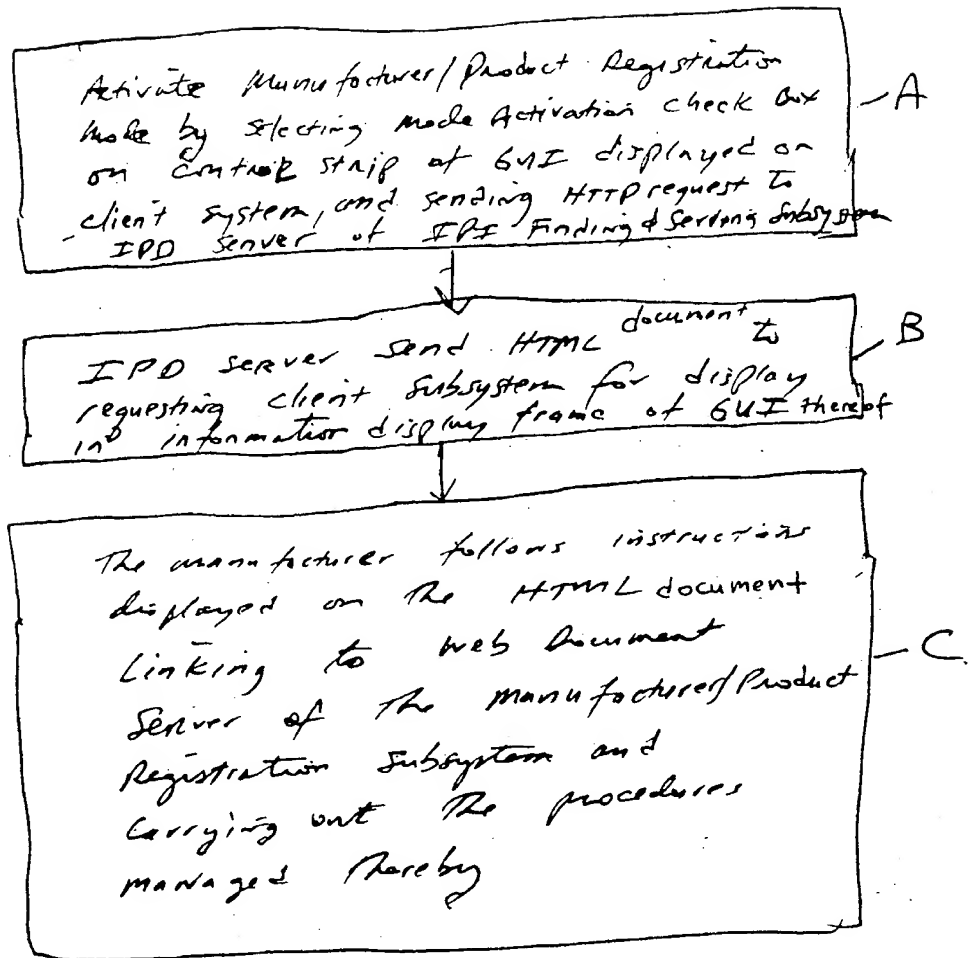 Activate Manufacturer/Product Registration
Mode by selecting mode Activation check Box
on control strip of GUI displayed on
client system, and sending HTTP request to
IPD server of IPI Finding & Serving Subsystem
A
IPD server send HTML document to
requesting client subsystem for display
in information display frame of GUI thereof
B
The manufacturer follows instructions
displayed on the HTML document
Linking to web Document
Server of the Manufacturer/Product
Registration subsystem and
Carrying out the procedures
managed thereby
C